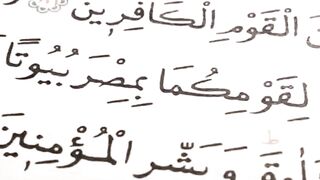 الْقَوْمِ الْكَافِرِينَ
لِقَوْمِكُمَا بِمِصْرَ بُيُوتًا
وَبَشِّرِ الْمُؤْمِنِينَ